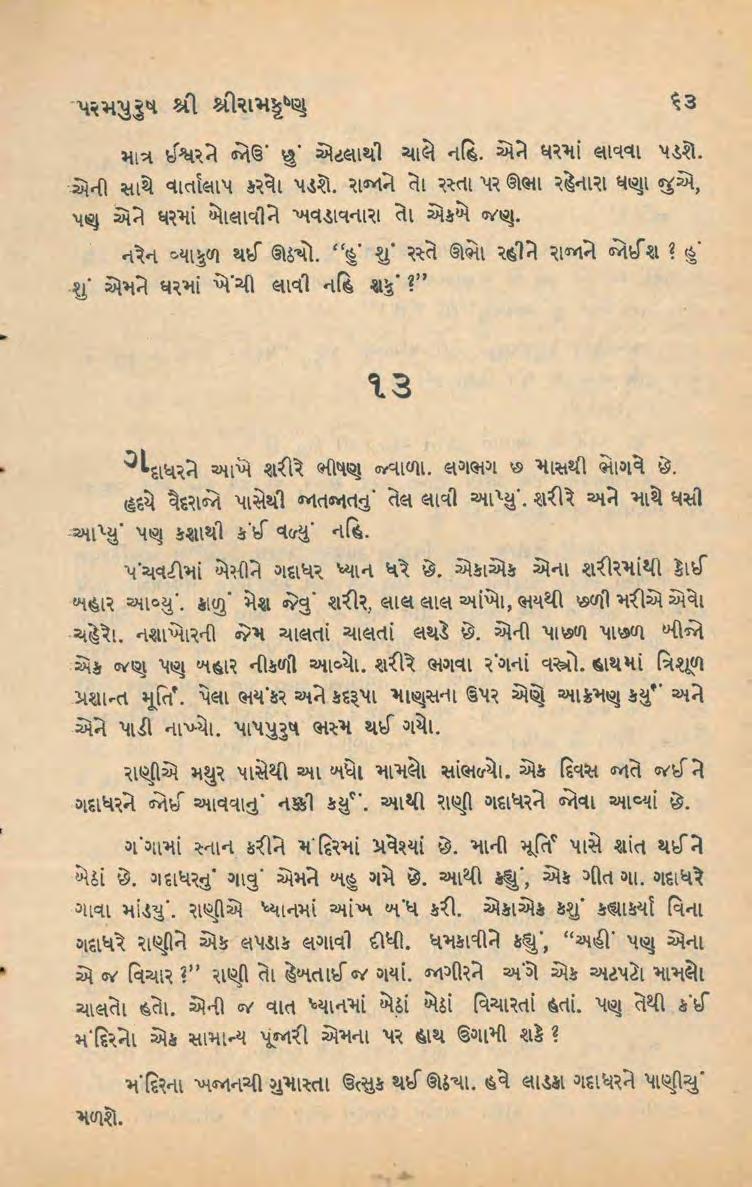 પરમપુરુષ શ્રી શ્રીરામકૃષ્ણ ૬૩
માત્ર ઈશ્વરને જોઉં છું એટલાથી ચાલે નહિ. એને ઘરમાં લાવવા પડશે.
એની સાથે વાર્તાલાપ કરવો પડશે. રાજાને તો રસ્તા પર ઊભા રહેનારા ઘણા જુએ,
પણ એને ઘરમાં બોલાવીને ખવડાવનારા તો એકબે જણ.
નરેન વ્યાકુળ થઈ ઊઠયો. “હું શું રસ્તે ઊભો રહીને રાજાને જોઈશ ? હું
શું એમને ઘરમાં ખેંચી લાવી નહિ શકું ?”
૧૩
ગદાધરને આખે શરીરે ભીષણ જ્વાળા. લગભગ છ માસથી ભોગવે છે.
હૃદયે વૈદરાજો પાસેથી જાતજાતનું તેલ લાવી આપ્યું. શરીરે અને માથે ઘસી
આપ્યું પણ કશાથી કંઈ વળ્યું નહિ.
પંચવટીમાં બેસીને ગદાધર ધ્યાન ધરે છે. એકાએક એના શરીરમાંથી કોઈ
બહાર આવ્યું. કાળું મેશ જેવું શરીર, લાલ લાલ આંખો, ભયથી છળી મરીએ એવો
ચહેરો. નશાખોરની જેમ ચાલતાં ચાલતાં લથડે છે. એની પાછળ પાછળ બીજો
એક જણ પણ બહાર નીકળી આવ્યો. શરીરે ભગવા રંગનાં વસ્ત્રો. હાથમાં ત્રિશૂળ
પ્રશાન્ત મૂર્તિ. પેલા ભયંકર અને કદરૂપા માણસના ઉપર એણે આક્રમણ કર્યું અને
એને પાડી નાખ્યો. પાપપુરુષ ભસ્મ થઈ ગયો.
રાણીએ મથુર પાસેથી આ બધો મામલો સાંભળ્યો. એક દિવસ જાતે જઈને
ગદાધરને જોઈ આવવાનું નક્કી કર્યું. આથી રાણી ગદાધરને જોવા આવ્યાં છે.
ગંગામાં સ્નાન કરીને મંદિરમાં પ્રવેશ્યાં છે. માની મૂર્તિ પાસે શાંત થઈને
બેઠાં છે. ગદાધરનું ગાવું એમને બહુ ગમે છે. આથી કહ્યું, એક ગીત ગા. ગદાધરે
ગાવા માંડયું. રાણીએ ધ્યાનમાં આંખ બંધ કરી. એકાએક કશું કહ્યાકર્યા વિના
ગદાધરે રાણીને એક લપડાક લગાવી દીધી. ધમકાવીને કહ્યું, “અહીં પણ એના
એ જ વિચાર ?” રાણી તો હેબતાઈ જ ગયાં. જાગીરને અંગે એક અટપટો મામલો
ચાલતો હતો. એની જ વાત ધ્યાનમાં બેઠાં બેઠાં વિચારતાં હતાં. પણ તેથી કંઈ
મંદિરનો એક સામાન્ય પૂજારી એમના પર હાથ ઉગામી શકે ?
મંદિરના ખજાનચી ગુમાસ્તા ઉત્સુક થઈ ઊઠયા. હવે લાડકા ગદાધરને પાણીચું
મળશે.